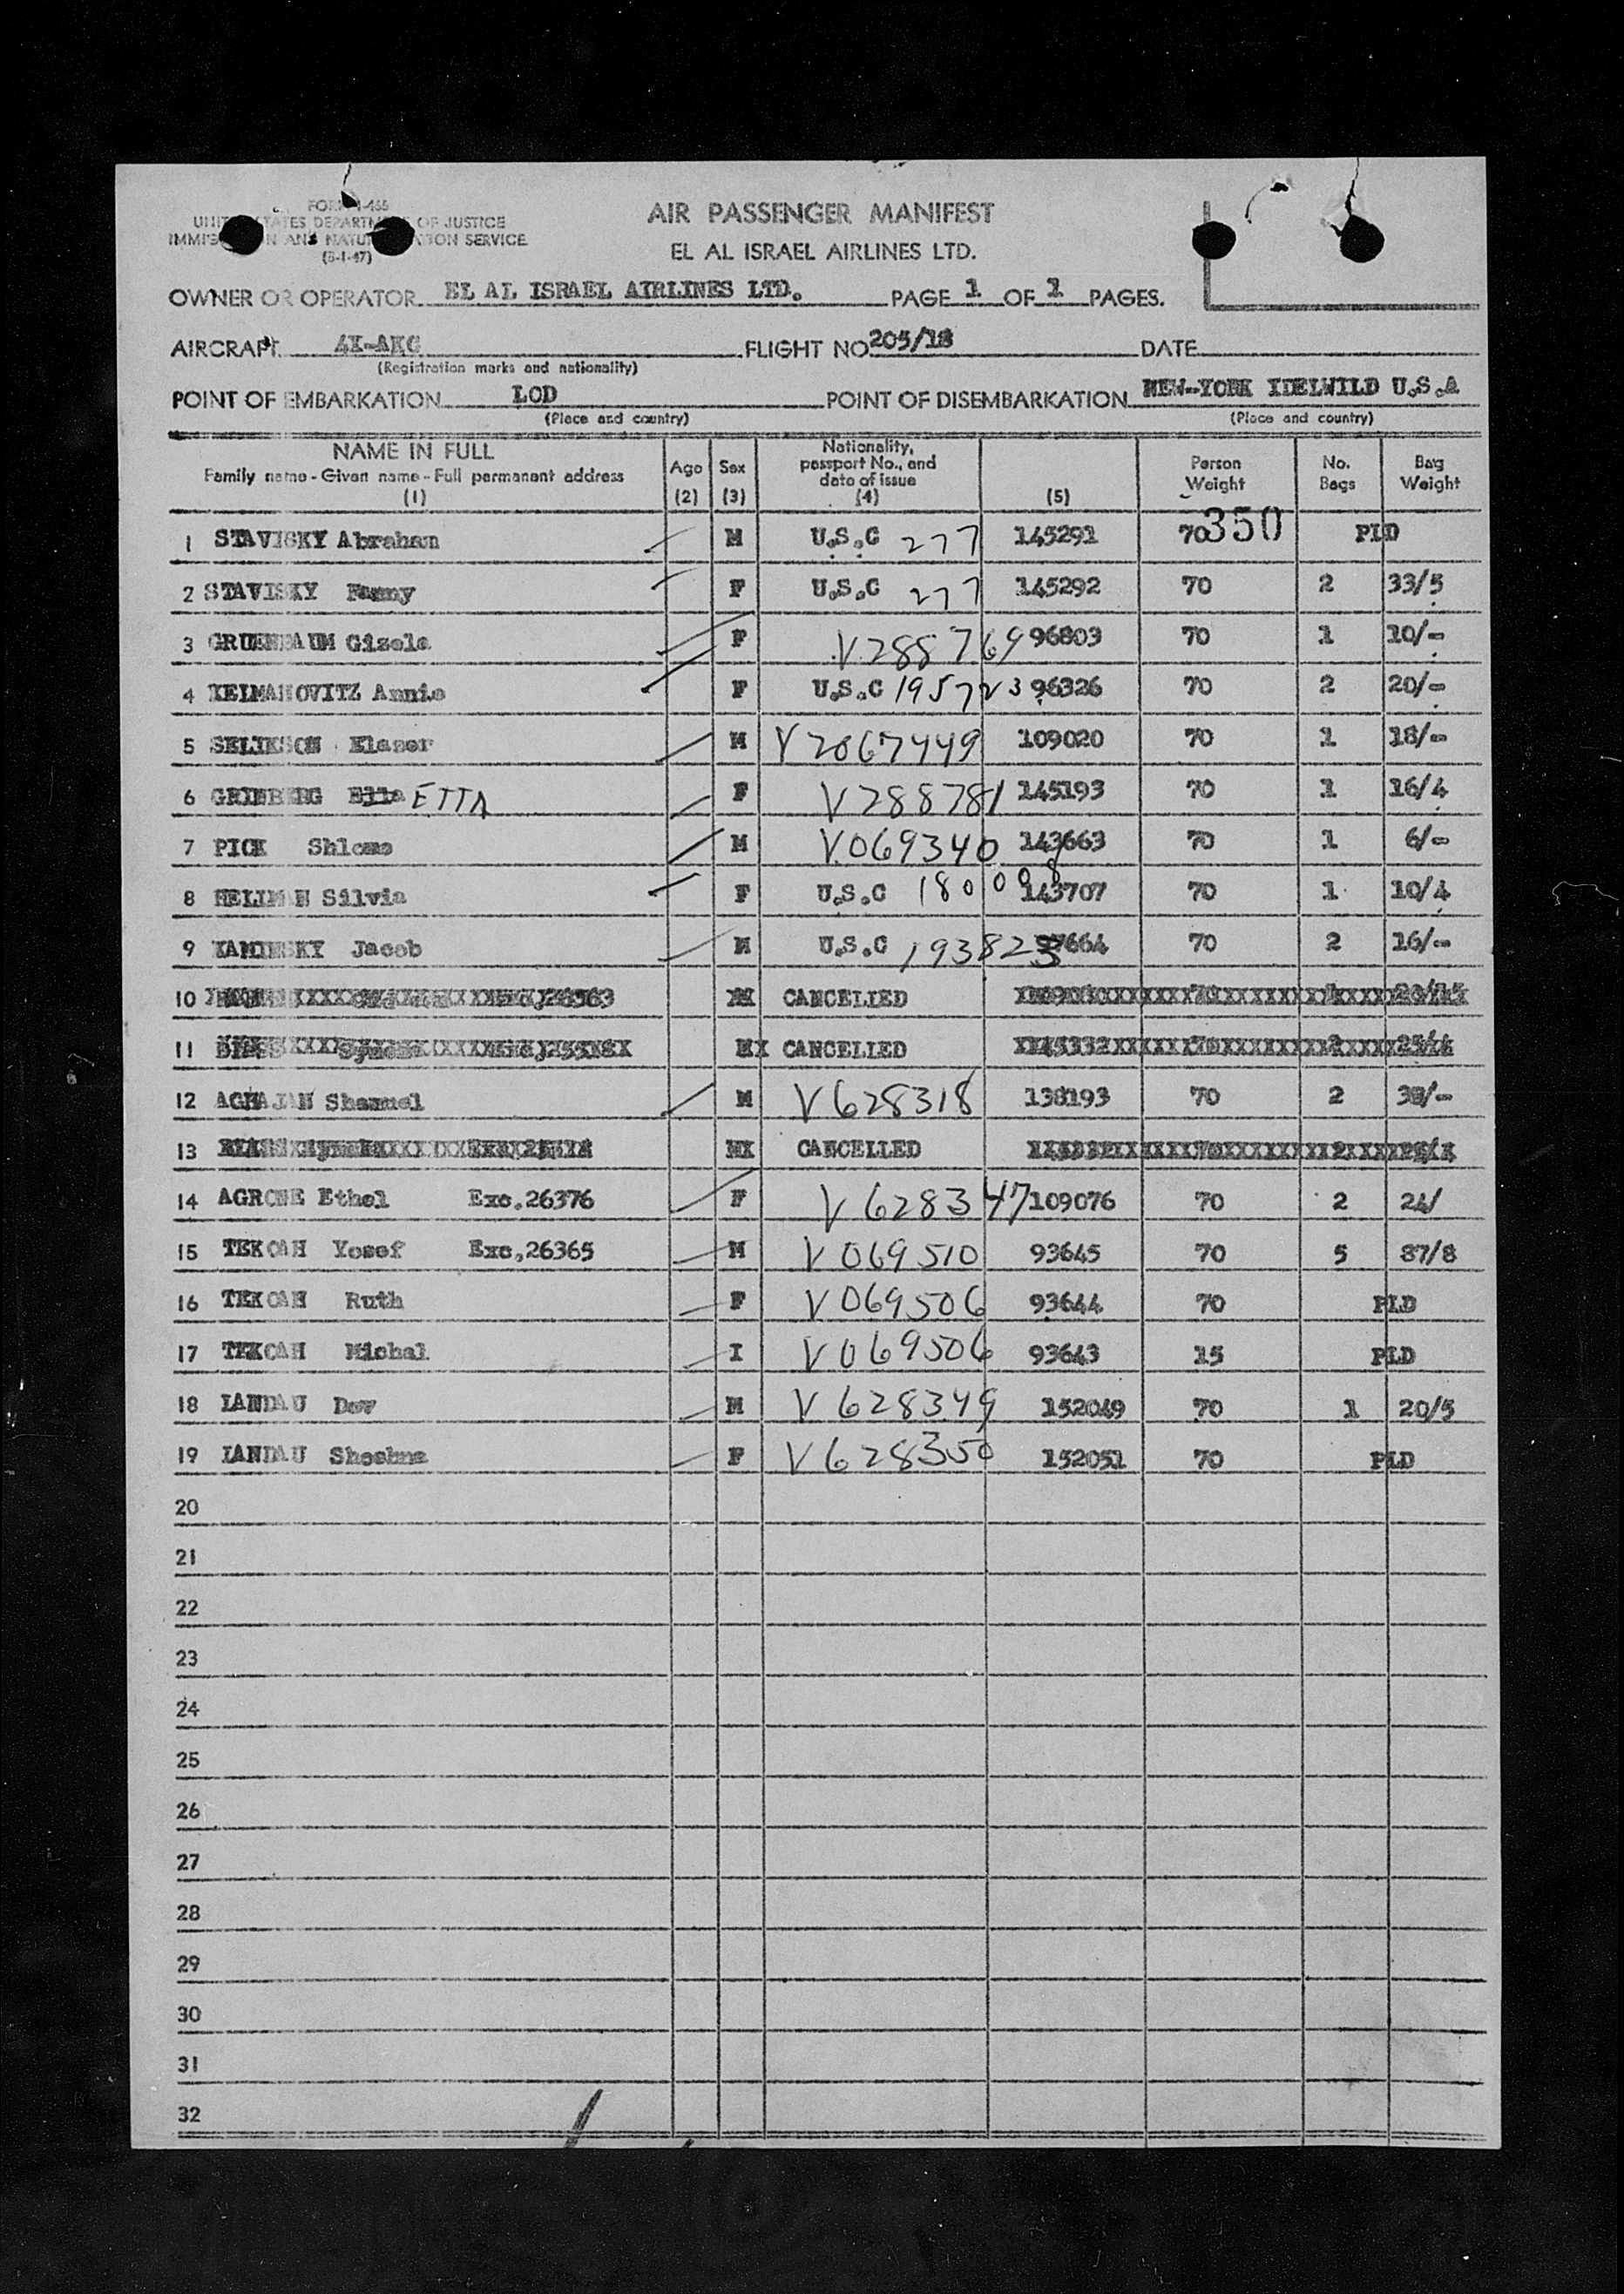 FORM I-466
UNITED STATES DEPARTMENT OF JUSTICE
IMMIGRATION AND NATURALIZATION SERVICE
(8-1-47)
AIR PASSENGER MANIFEST
EL AL ISRAEL AIRLINES LTD.
OWNER OR OPERATOR EL AL ISRAEL AIRLINES LTD. PAGE 1 OF 1 PAGES.
AIRCRAFT 4X-AKG FLIGHT NO 205/18 DATE
(Registration marks and nationality)
POINT OF EMBARKATION LOD POINT OF DISEMBARKATION NEW-YORK IDELWILD U.S.A
(Place and country) (Place and country)
NAME IN FULL Family name - Given name - Full permanent address (1) Age (2) Sex (3) Nationality, passport No., and date of issue (4) (5) Person Weight No. Bags Bag Weight
350
1 STAVISKY Abraham M U.S.C 277 145291 70 PLD
2 STAVISKY Fanny F U.S.C 277 145292 70 2 33/5
3 GRUENBAUM Gizela F V288769 96803 70 1 10/-
4 KELMANOVITZ Annie F U.S.C 195723 96326 70 2 20/-
5 SELIKSON Elazer M V2067449 109020 70 1 18/-
6 GRINBERG Ella ETTA F V288781 145193 70 1 16/4
7 PICK Shlomo M V069340 143663 70 1 6/-
8 HELLMAN Silvia F U.S.C 180098 143707 70 1 10/4
9 KAMINSKY Jacob M U.S.C 193823 97664 70 2 16/-
10 26363 CANCELLED
11 CANCELLED
12 AGHAJAN Shamuel M V628318 138193 70 2 38/-
13 CANCELLED
14 AGRONE Ethel Exc.26376 F V628347 109076 70 2 24/
15 TEKOAH Yosef Exc,26365 M V069510 93645 70 5 87/8
16 TEKOAH Ruth F V069506 93644 70 PLD
17 TEKOAH Michal I V069506 93643 15 PLD
18 LANDAU Dov M V628349 152049 70 1 20/5
19 LANDAU Shoshna F V628350 152051 70 PLD
20
21
22
23
24
25
26
27
28
29
30
31
32